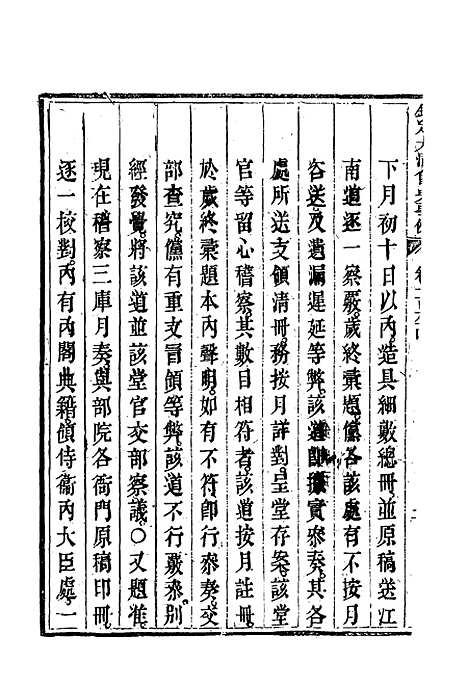 欽定大清會典事例
下月初十日以內造具細數總冊並原稿送江
南道逐一察覈歲終彙題儻各該處有不按月
咨送及遺漏遲延等弊該道即據實叅奏其各
處所送支領清冊務按月詳對呈堂存案該堂
官等留心稽察其數目相符者該道按月註冊
於歲終彙題本內聲明如有不符卽行叅奏交
部查究儻有重支冒領等弊該道不行嚴叅別
經發覺將該道並該堂官交部察議〇又題准
現在稽察三庫月奏與部院各衙門原稿印冊
逐一校對內有內閣典籍領侍衞內大臣處一